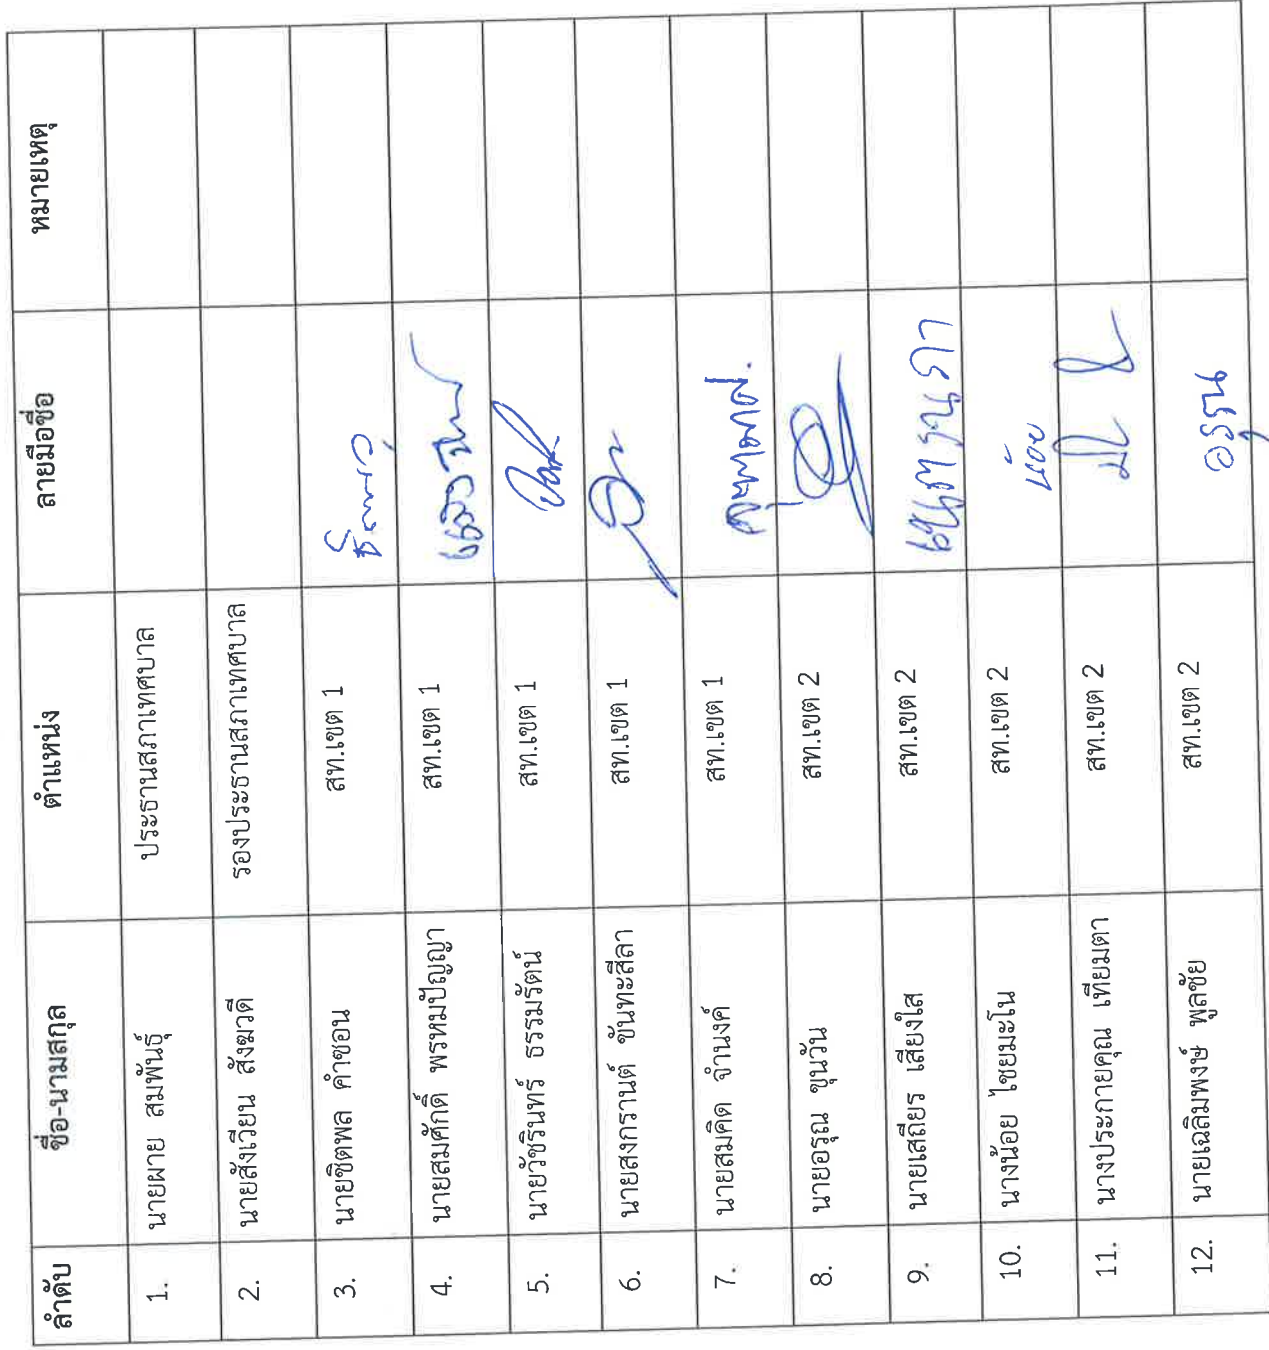 ลำดับ ชื่อ-นามสกุล ตำแหน่ง ลายมือชื่อ หมายเหตุ
1. นายผาย สมพันธุ์ ประธานสภาเทศบาล
2. นายสังเวียน สังฆวดี รองประธานสภาเทศบาล
3. นายชิตพล คำซอน สท.เขต 1
4. นายสมศักดิ์ พรหมปัญญา สท.เขต 1
5. นายวัชรินทร์ ธรรมรัตน์ สท.เขต 1
6. นายสงกรานต์ ขันทะสีลา สท.เขต 1
7. นายสมคิด จำนงค์ สท.เขต 1
8. นายอรุณ ขุนวัน สท.เขต 2
9. นายเสถียร เสียงใส สท.เขต 2
10. นางน้อย ไชยมะโน สท.เขต 2 น้อย
11. นางประกายคุณ เทียมตา สท.เขต 2
12. นายเฉลิมพงษ์ พูลชัย สท.เขต 2